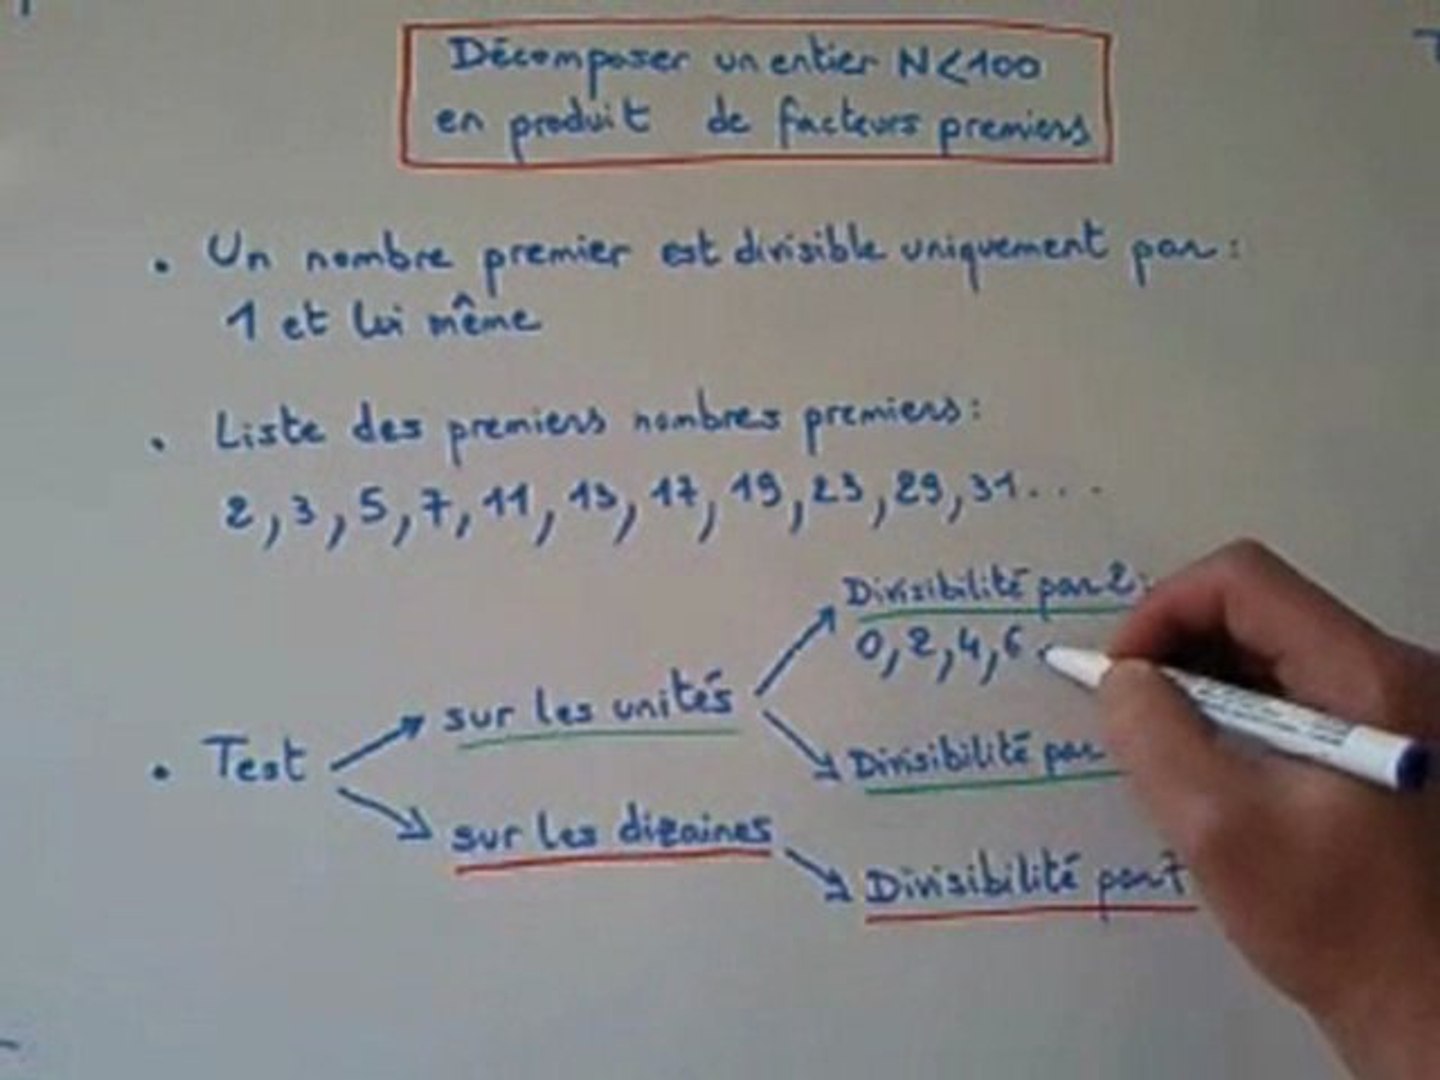 Décomposer un entier N<100
en produit de facteurs premiers
• Un nombre premier est divisible uniquement par :
1 et lui même
• Liste des premiers nombres premiers :
2, 3, 5, 7, 11, 13, 17, 19, 23, 29, 31 . . .
Divisibilité par 2 :
0, 2, 4, 6
sur les unités
• Test
Divisibilité par
sur les dizaines
Divisibilité par 7